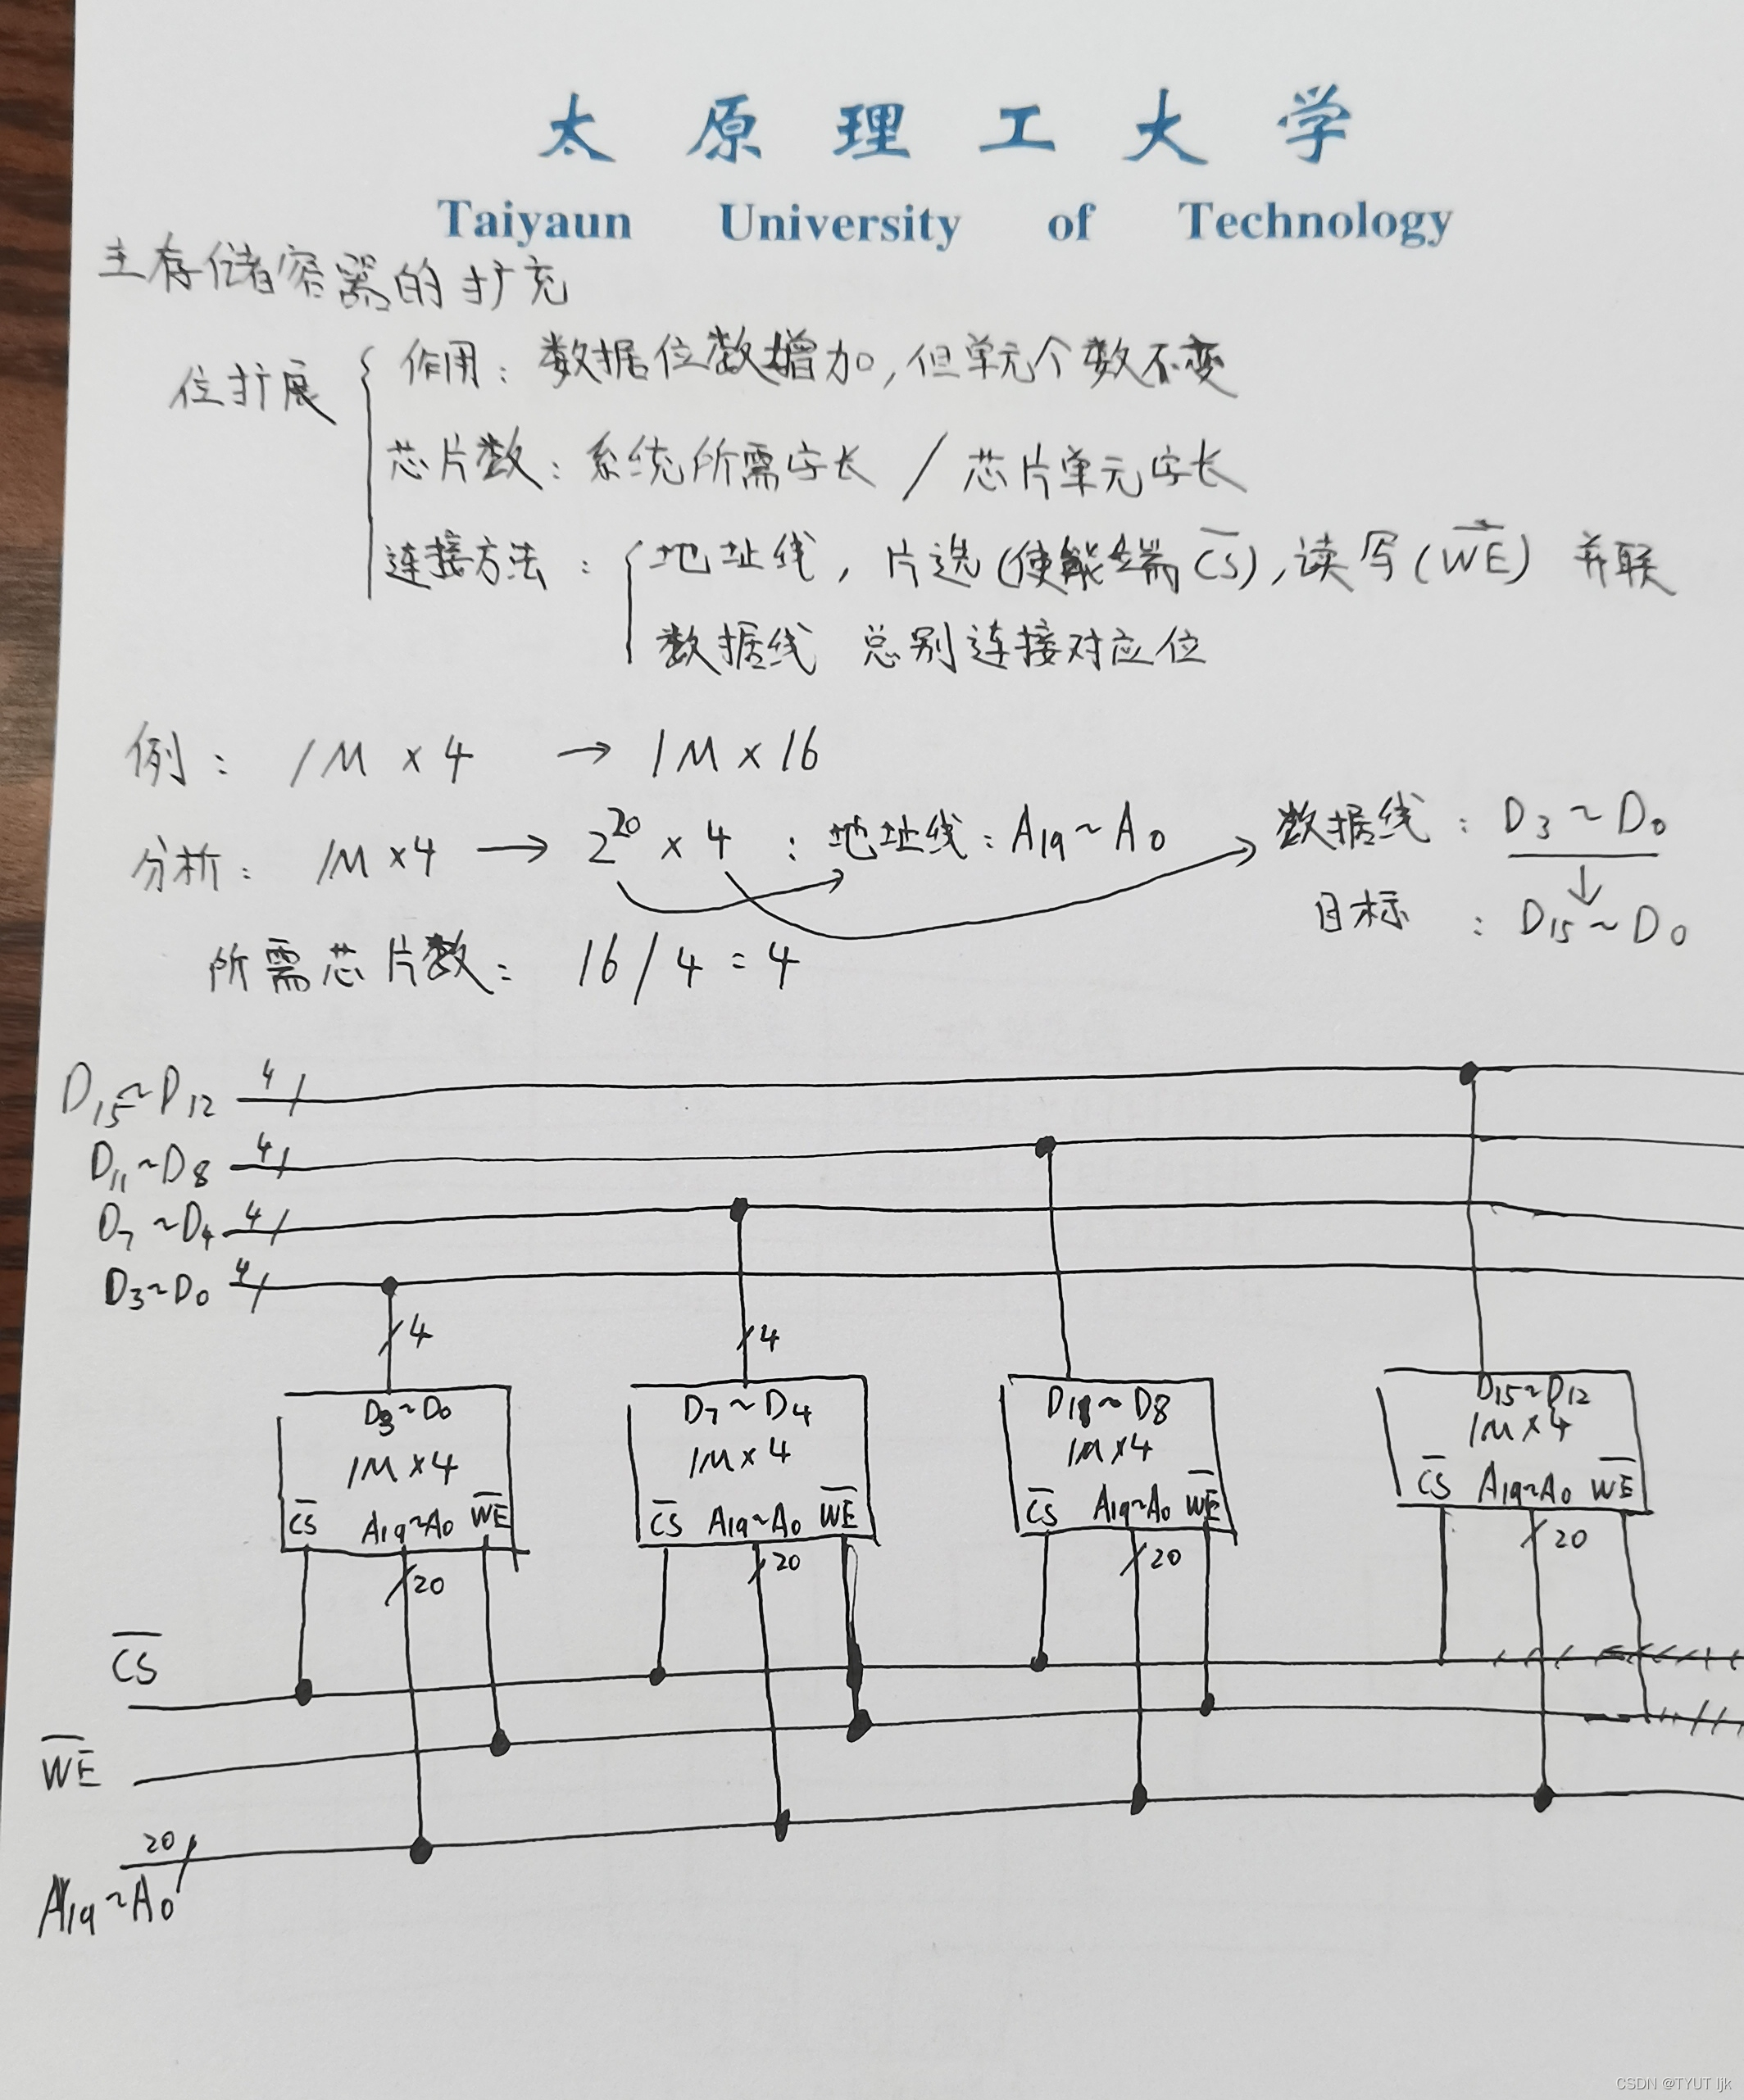 太原理工大学
Taiyaun University of Technology
主存储容器的扩充
位扩展
作用：数据位数增加，但单元个数不变
芯片数：系统所需字长 / 芯片单元字长
连接方法：
地址线，片选(使能端 C̅S̅)，读写(W̅E̅) 并联
数据线 总别连接对应位
例： 1M × 4 → 1M × 16
分析： 1M × 4 → 2²⁰ × 4 ：地址线：A₁₉~A₀ 数据线：D₃~D₀
↓
目标：D₁₅~D₀
所需芯片数： 16 / 4 = 4
D₁₅~D₁₂ 4
D₁₁~D₈ 4
D₇~D₄ 4
D₃~D₀ 4
4 4
D₃~D₀ D₇~D₄ D₁₁~D₈ D₁₅~D₁₂
1M×4 1M×4 1M×4 1M×4
C̅S̅ A₁₉~A₀ W̅E̅ C̅S̅ A₁₉~A₀ W̅E̅ C̅S̅ A₁₉~A₀ W̅E̅ C̅S̅ A₁₉~A₀ W̅E̅
20 20 20 20
C̅S̅
W̅E̅
20
A₁₉~A₀
CSDN @TYUT ljk